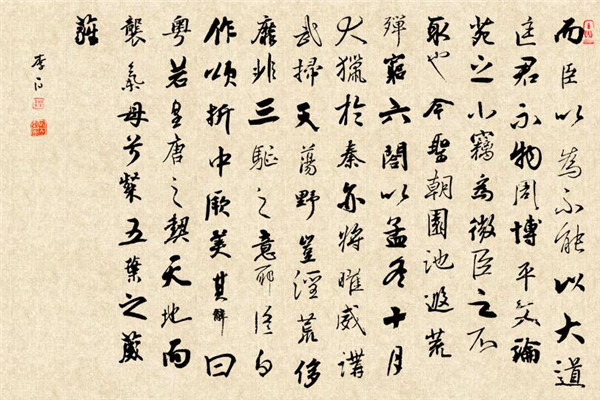 而臣以為不能以大道
匡君示物周博平文論
苑之小竊為微臣之不
取也今聖朝園池遐荒
殫窮六閤以孟冬十月
大獵於秦亦將曜威講
武掃天蕩野豈淫荒侈
靡非三驅之意耶臣白
作頌折中厥美其辭曰
粵若皇唐之契天地而
襲氣母兮粲五葉之葳
蕤
李白